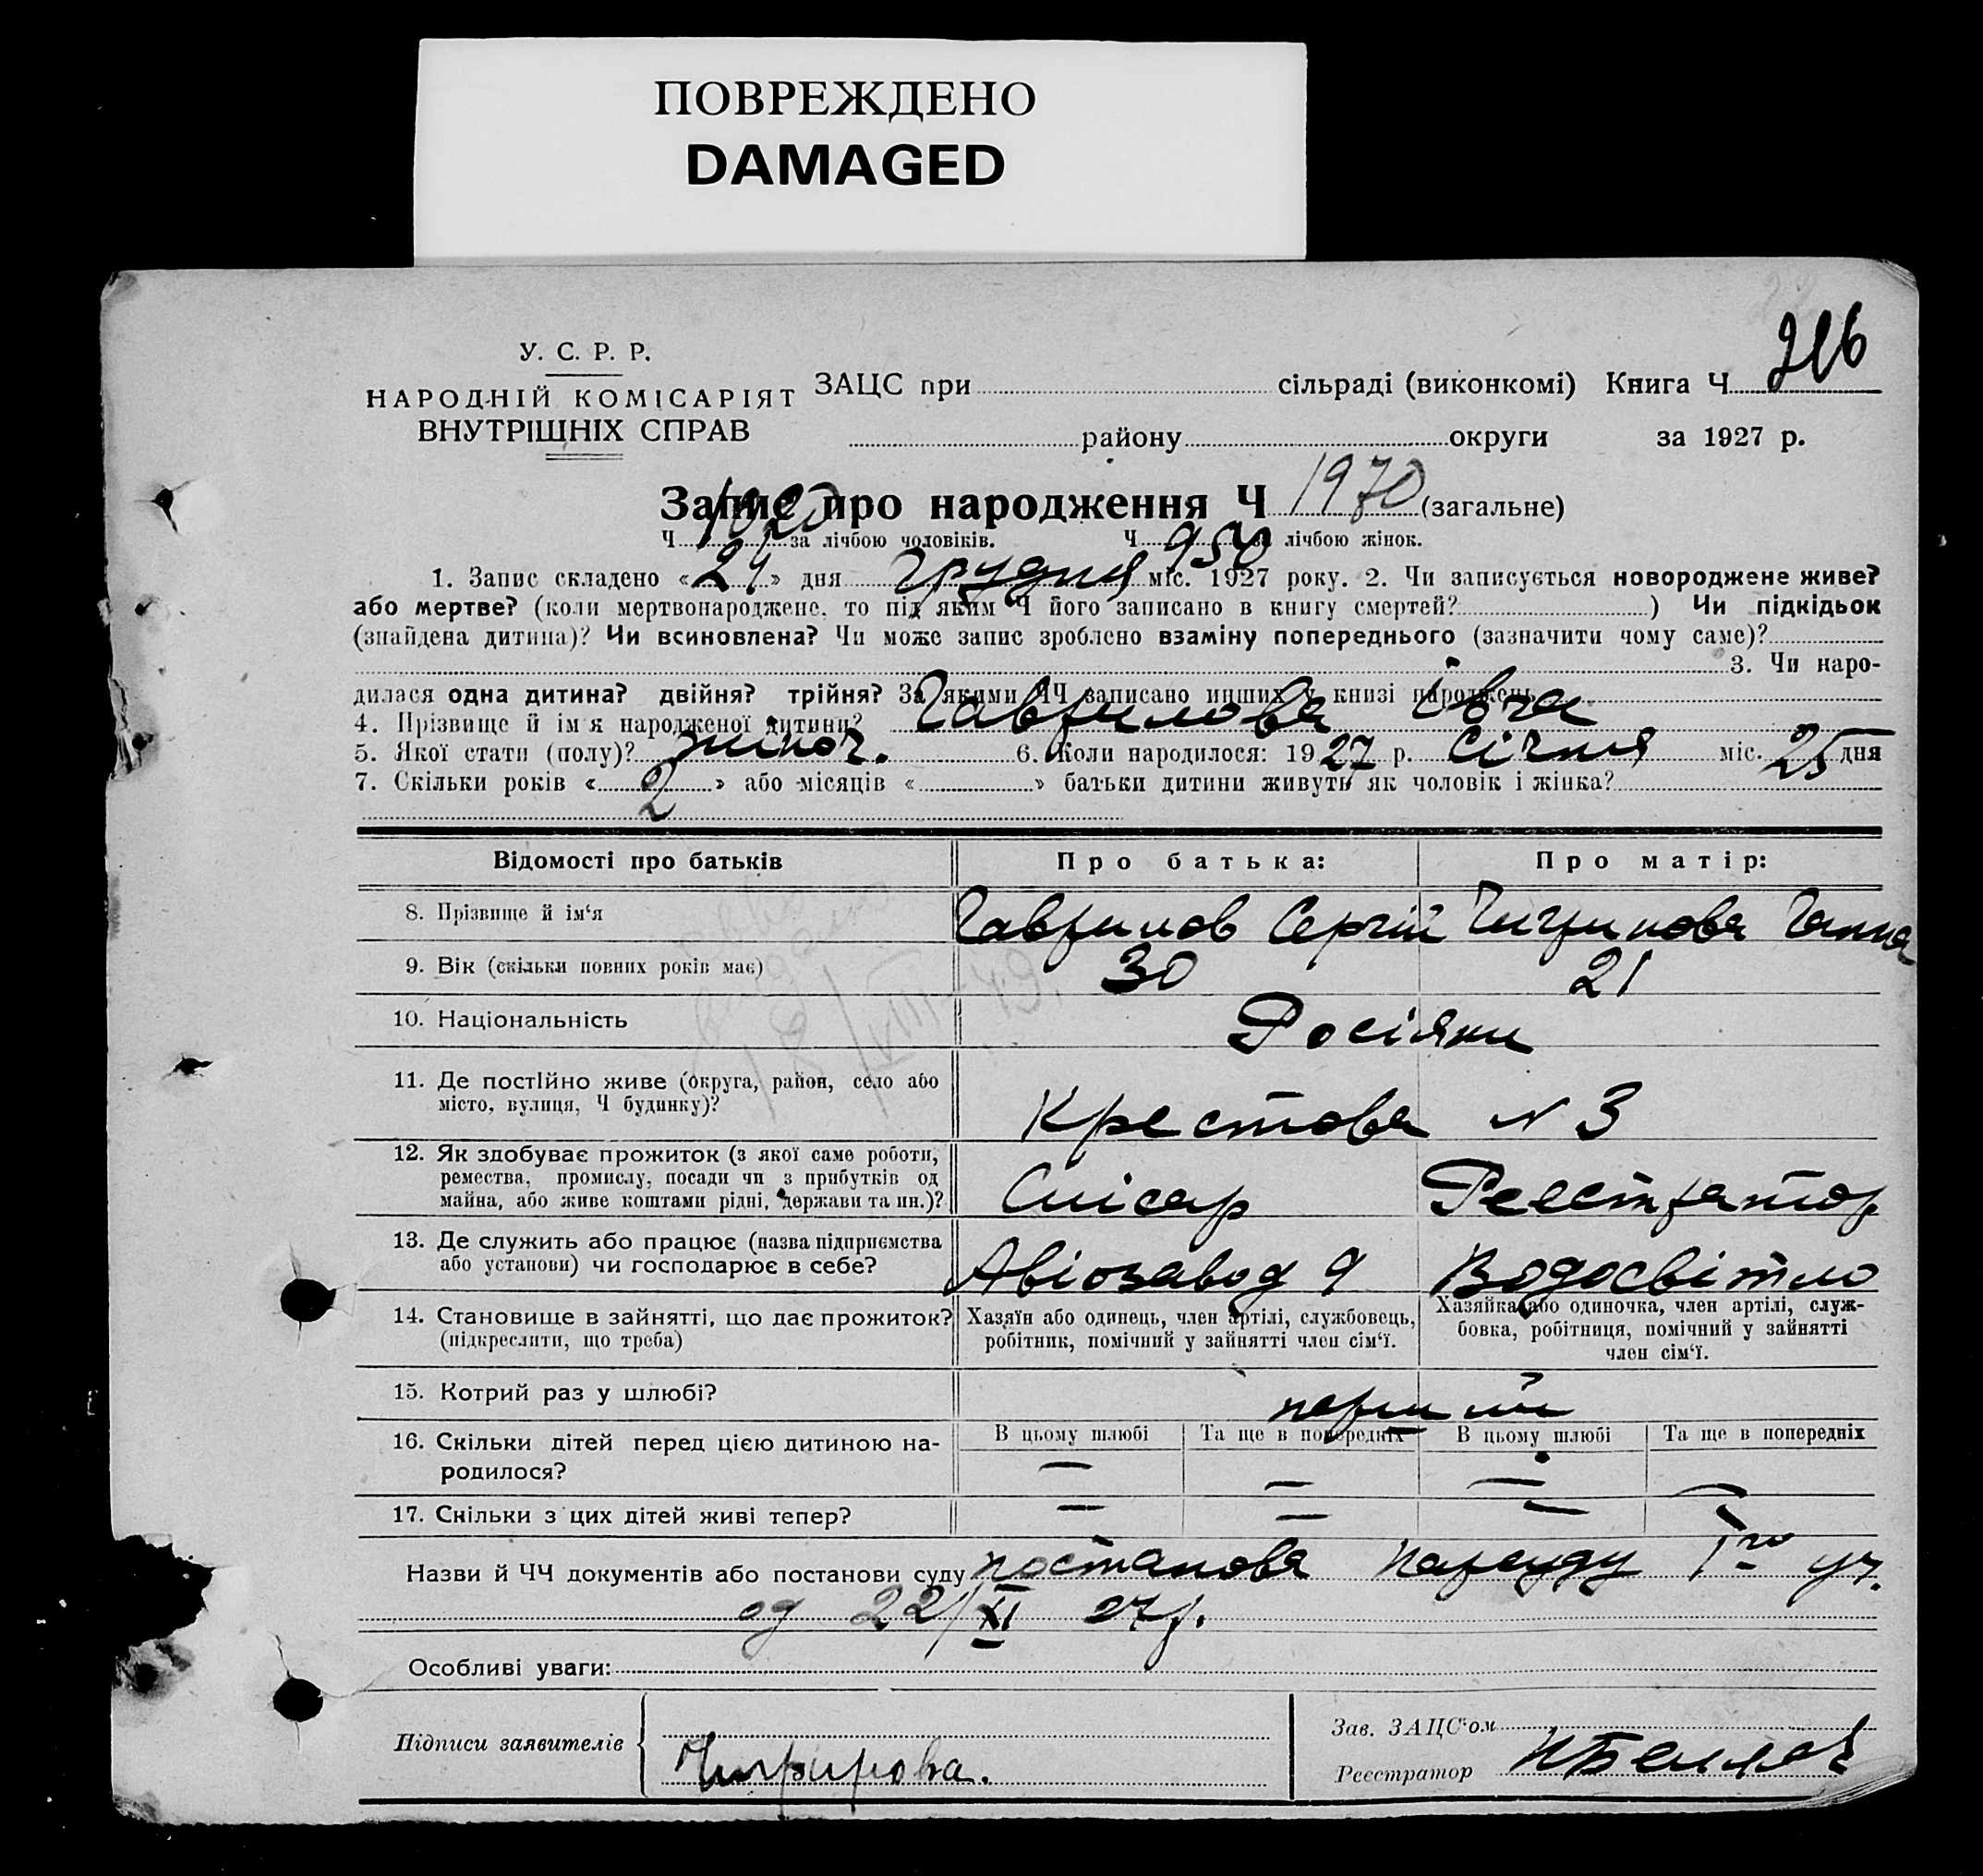 ПОВРЕЖДЕНО
DAMAGED
У. С. Р. Р.
НАРОДНІЙ КОМІСАРІЯТ
ВНУТРІШНІХ СПРАВ
ЗАЦС при сільраді (виконкомі) Книга Ч
району округи за 1927 р.
Запис про народження Ч 1970 (загальне)
Ч 1020 за лічбою чоловіків. Ч 950 за лічбою жінок.
1. Запис складено « 24 » дня грудня міс. 1927 року. 2. Чи записується новороджене живе?
або мертве? (коли мертвонароджене, то під яким Ч його записано в книгу смертей? ) Чи підкідьок
(знайдена дитина)? Чи всиновлена? Чи може запис зроблено взаміну попереднього (зазначити чому саме)?
3. Чи наро-
дилася одна дитина? двійня? трійня? За якими ЧЧ записано инших у книзі народжень
4. Прізвище й ім'я народженої дитини? Гаврилова
5. Якої стати (полу)? жіноч. 6. Коли народилося: 1927 р. січня міс. 25 дня
7. Скільки років « 2 » або місяців « » батьки дитини живуть як чоловік і жінка?
Відомості про батьків Про батька: Про матір:
8. Прізвище й ім'я Гаврилов Сергій Ганна
9. Вік (скільки повних років має) 30 21
10. Національність Росіяни
11. Де постійно живе (округа, район, село або
місто, вулиця, Ч будинку)? Крестова N 3
12. Як здобуває прожиток (з якої саме роботи,
ремества, промислу, посади чи з прибутків од
майна, або живе коштами рідні, держави та ин.)? Слісар Реєстратор
13. Де служить або працює (назва підприємства
або установи) чи господарює в себе? Авіозавод 9 Водосвітло
14. Становище в зайнятті, що дає прожиток?
(підкреслити, що треба)
Хазяїн або одинець, член артілі, службовець,
робітник, помічний у зайнятті член сім'ї.
Хазяйка або одиночка, член артілі, служ-
бовка, робітниця, помічний у зайнятті
член сім'ї.
15. Котрий раз у шлюбі? перший
16. Скільки дітей перед цією дитиною на-
родилося?
В цьому шлюбі Та ще в попередніх В цьому шлюбі Та ще в попередніх
— — — —
17. Скільки з цих дітей живі тепер? — — — —
Назви й ЧЧ документів або постанови суду постанова Нарсуду 1го уч.
од 22/XI 27 р.
Особливі уваги:
Підписи заявителів
Зав. ЗАЦС'ом
Реєстратор